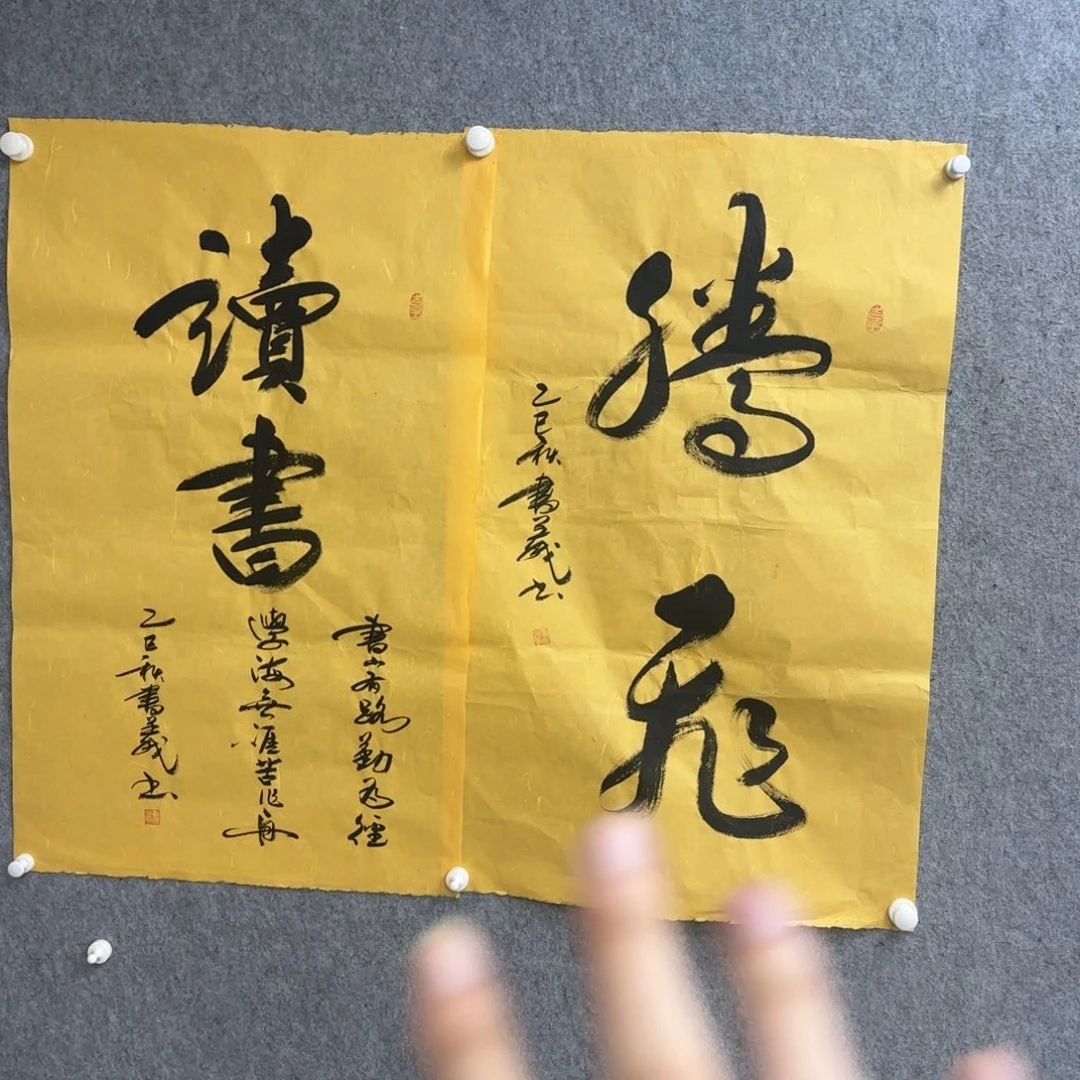 腾飞
乙巳秋書義书
讀書
書山有路勤為徑
學海無涯苦作舟
乙巳秋書義书